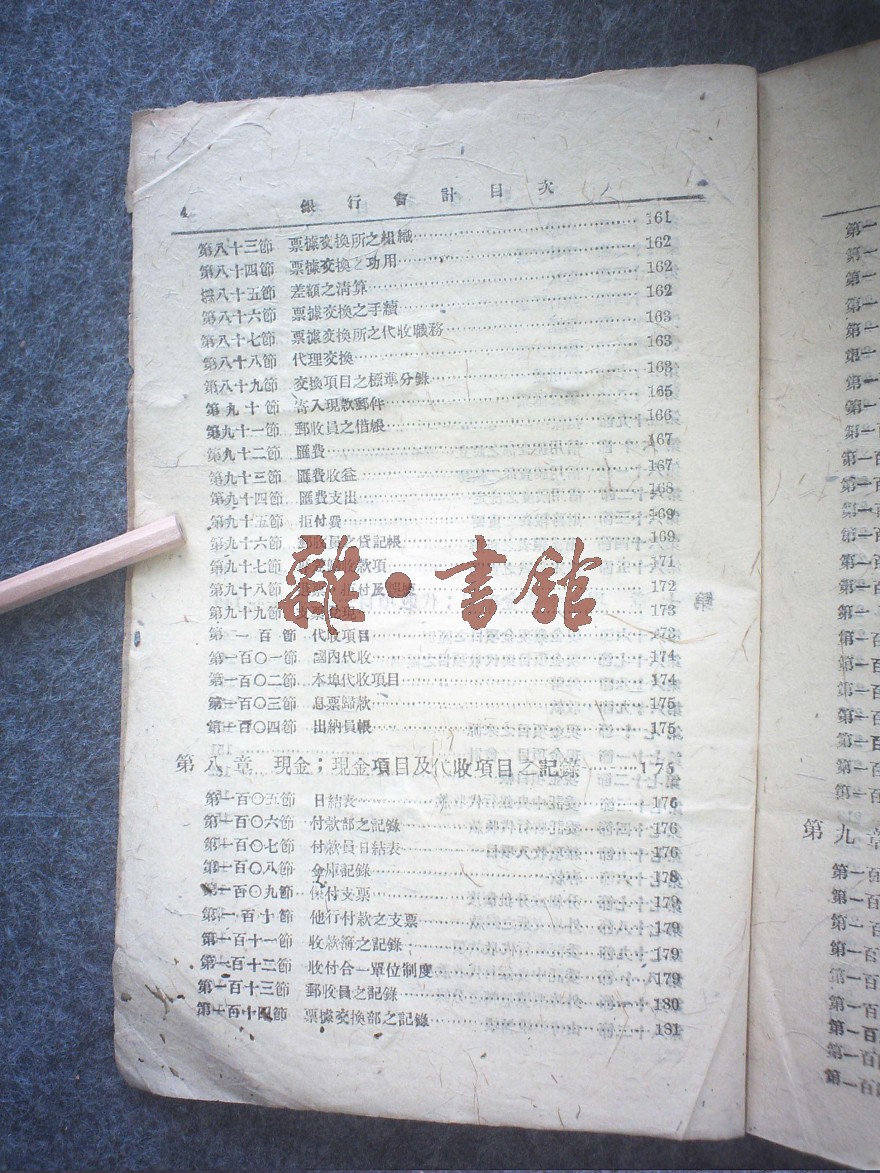 銀行會計目次
第八十三節 票據交換所之組織 161
第八十四節 票據交換之功用 162
第八十五節 差額之清算 162
第八十六節 票據交換之手續 162
第八十七節 票據交換所之代收職務 163
第八十八節 代理交換 163
第八十九節 交換項目之標準分錄 163
第九十節 寄入現款郵件 165
第九十一節 郵收員之借帳 166
第九十二節 匯費 167
第九十三節 匯費收益 167
第九十四節 匯費支出 168
第九十五節 拒付費 169
第九十六節 郵收員之貸記帳 169
第九十七節 收款項 171
第九十八節 拒付及 172
第九十九節 173
第一百節 代收項目 173
第一百〇一節 國內代收 174
第一百〇二節 本埠代收項目 174
第一百〇三節 息票歸款 175
第一百〇四節 出納員帳 175
第八章 現金；現金項目及代收項目之記錄 175
第一百〇五節 日結表 176
第一百〇六節 付款部之記錄 176
第一百〇七節 付款員日結表 176
第一百〇八節 金庫記錄 178
第一百〇九節 保付支票 179
第一百十節 他行付款之支票 179
第一百十一節 收款簿之記錄 179
第一百十二節 收付合一單位制度 179
第一百十三節 郵收員之記錄 180
第一百十四節 票據交換部之記錄 181
雜·書館
第九章